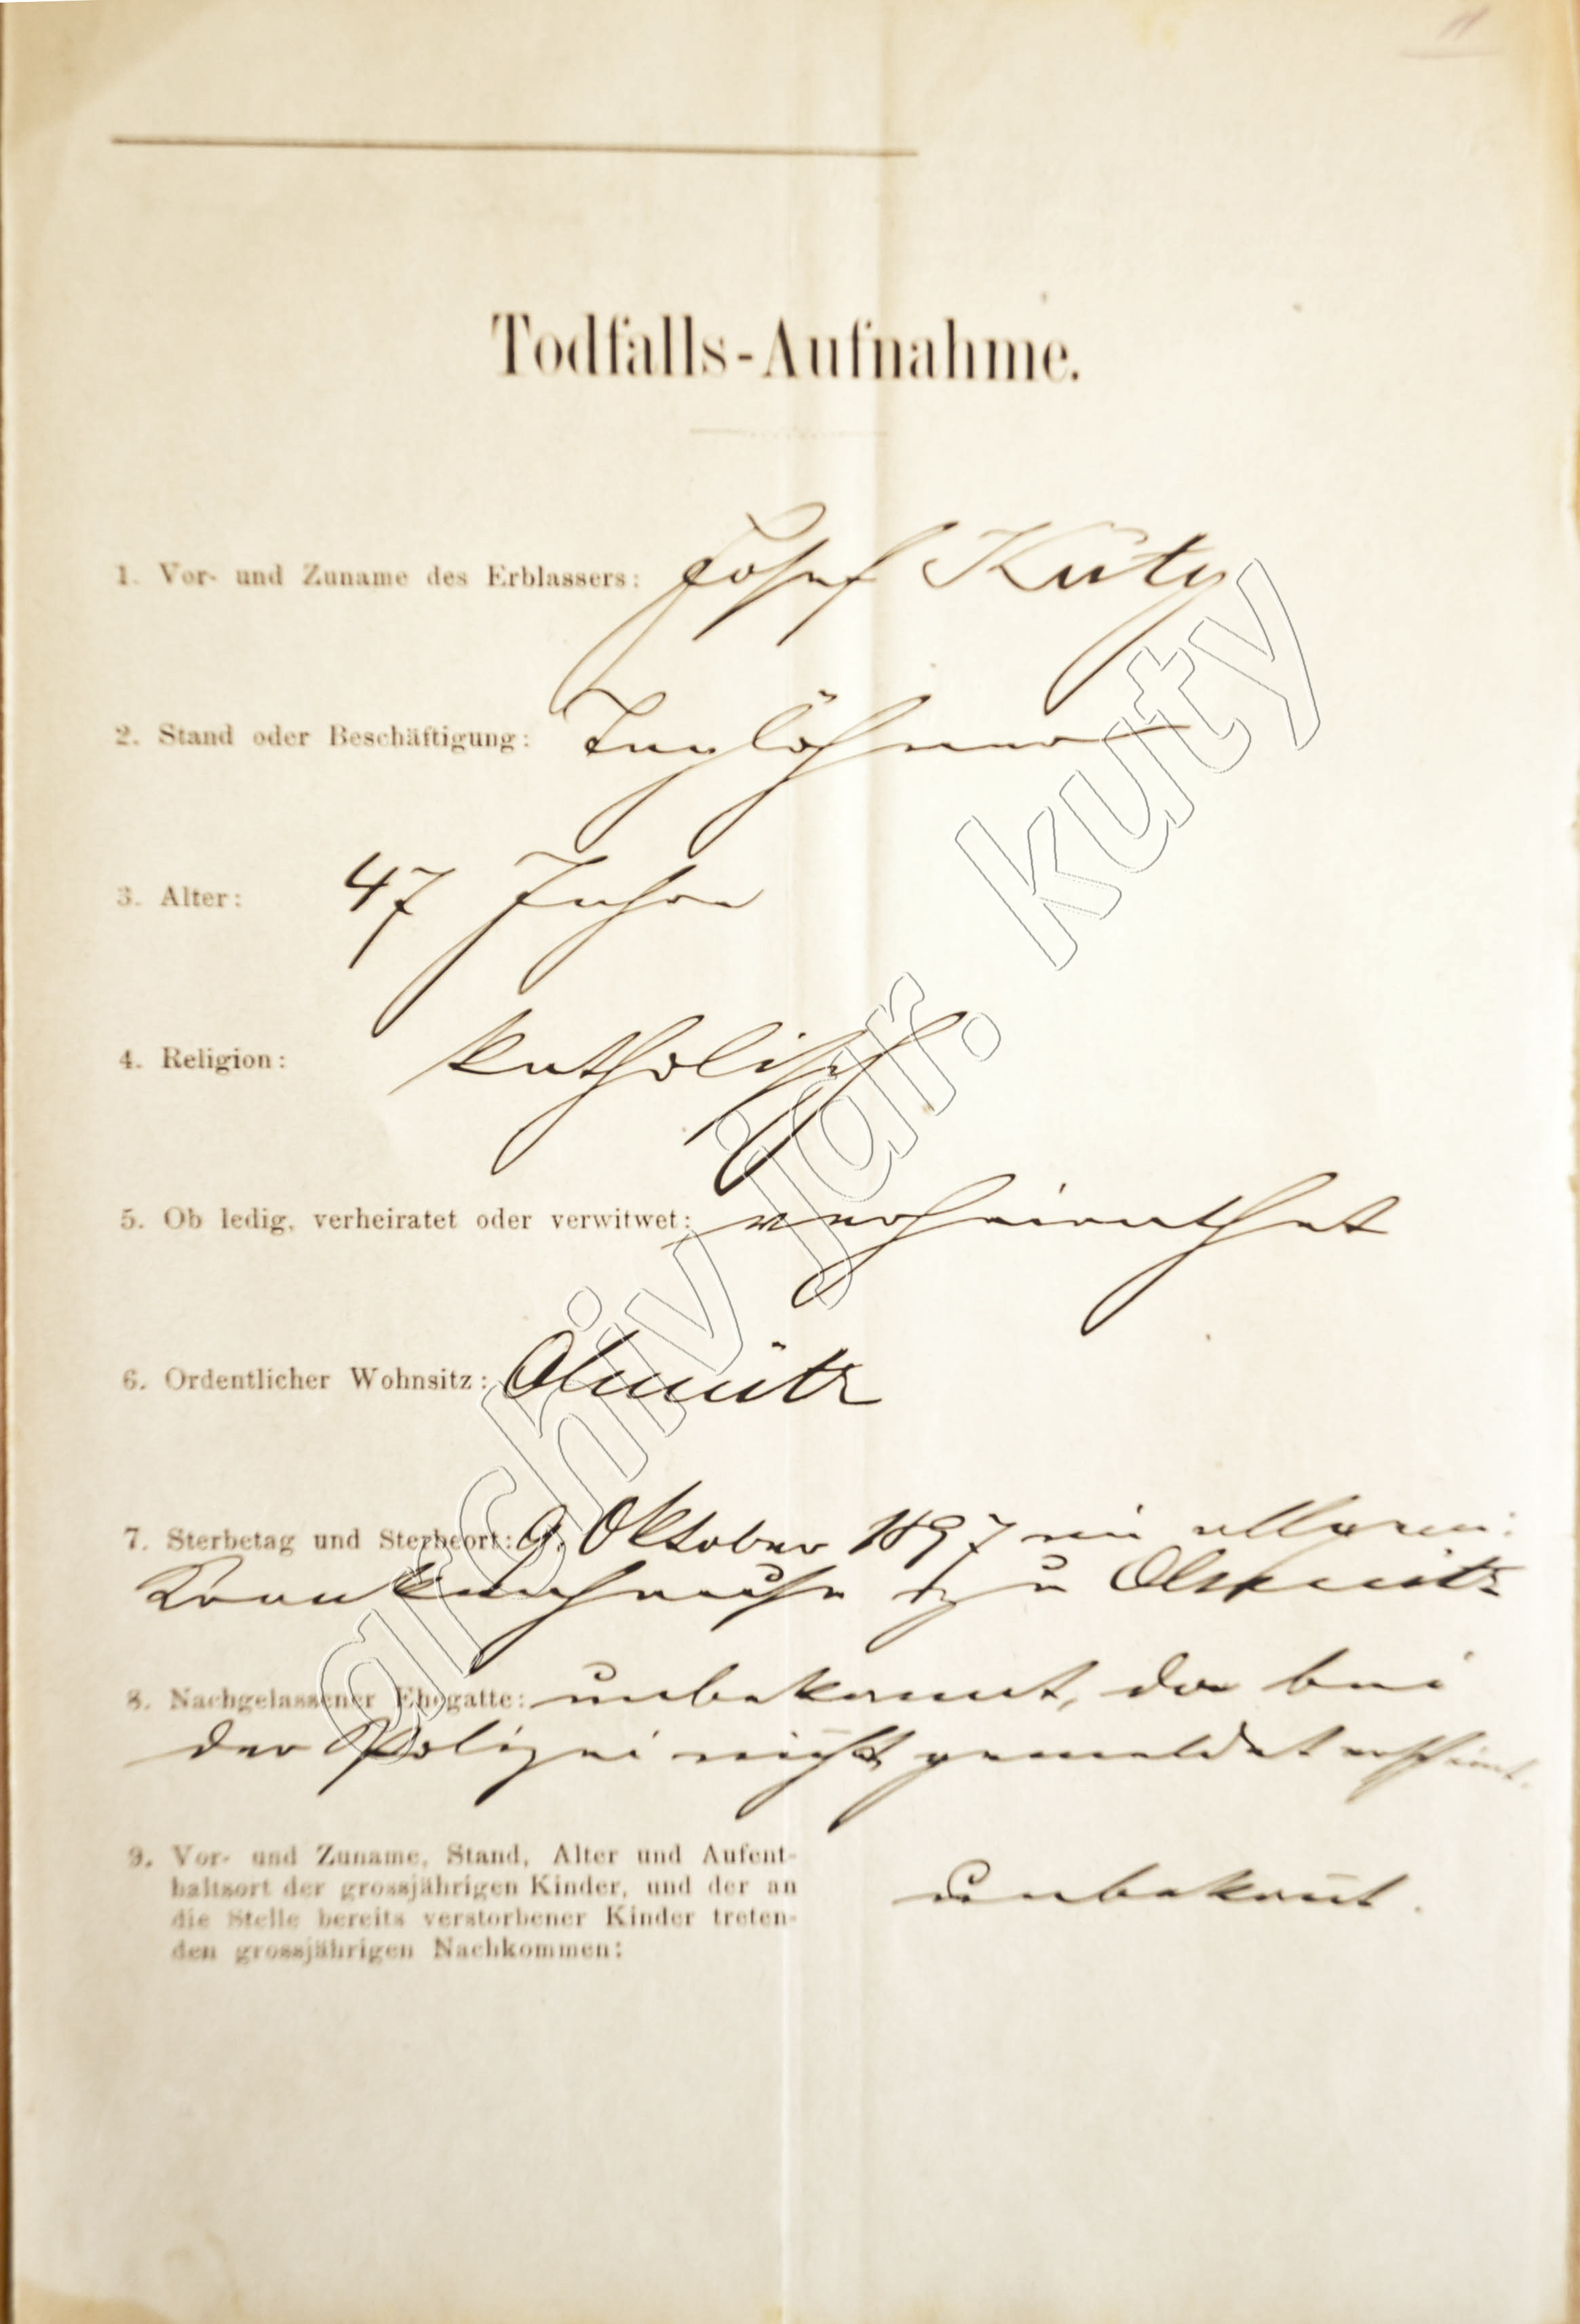 11
Todfalls-Aufnahme.
1. Vor- und Zuname des Erblassers: Josef Kuty
2. Stand oder Beschäftigung: Taglöhner
3. Alter: 47 Jahre
4. Religion: katholisch
5. Ob ledig, verheiratet oder verwitwet: verheirathet
6. Ordentlicher Wohnsitz: Olmütz
7. Sterbetag und Sterbeort: 9. Oktober 1897 im allgem:
Krankenhause zu Olmütz
8. Nachgelassener Ehegatte: unbekannt, da bei
der Polizei nicht gemeldet erscheint.
9. Vor- und Zuname, Stand, Alter und Aufent-
haltsort der grossjährigen Kinder, und der an
die Stelle bereits verstorbener Kinder treten-
den grossjährigen Nachkommen:
unbekannt.
archiv jar. kuty